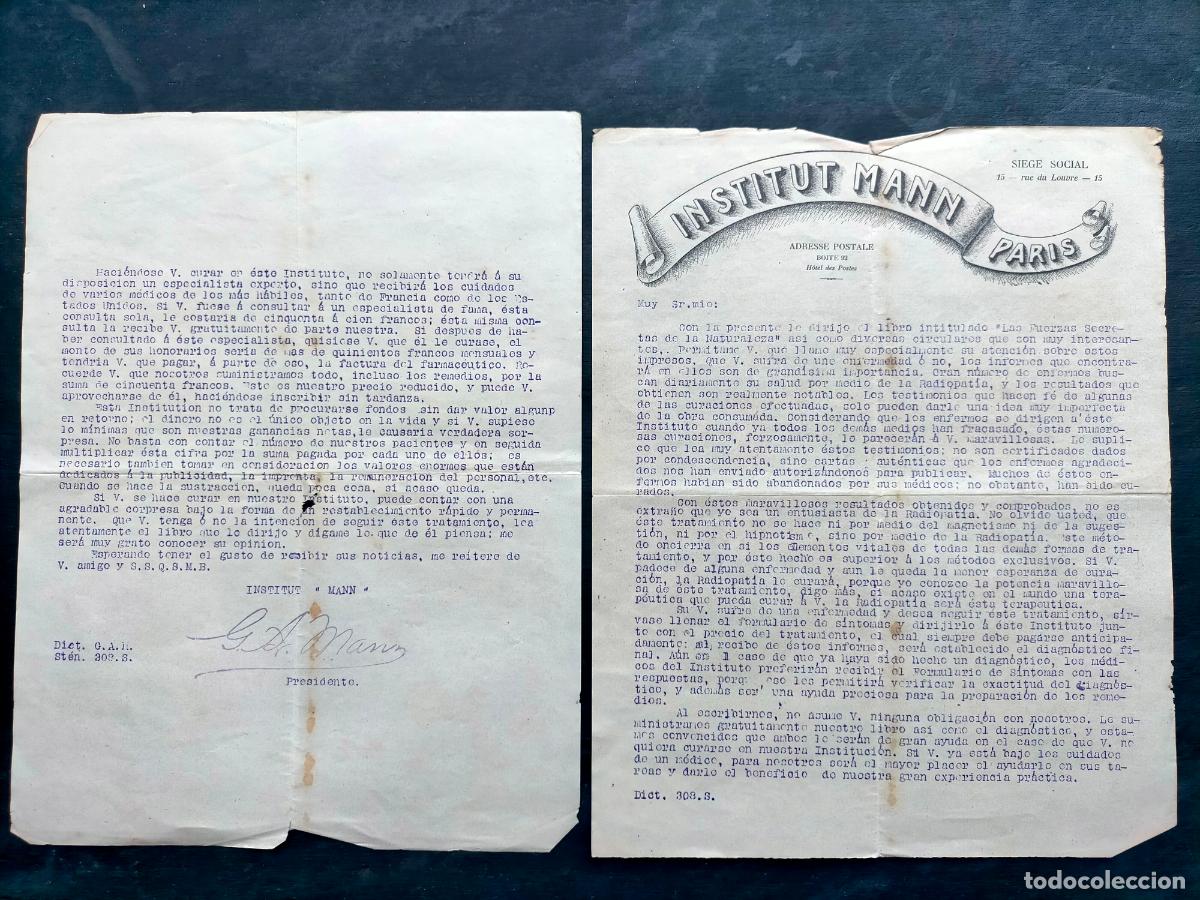 Haciéndose V. curar en éste Instituto, no solamente tendrá á su
disposicion un especialista experto, sino que recibirá los cuidados
de varios médicos de los más hábiles, tanto de Francia como de los Es-
tados Unidos. Si V. fuese á consultar á un especialista de fama, ésta
consulta sola, le costaria de cincuenta á cien francos; ésta misma con-
sulta la recibe V. gratuitamente de parte nuestra. Si despues de ha-
ber consultado á éste especialista, quisiese V. que él le curase, el
monto de sus honorarios seria de más de quinientos francos mensuales y
tendria V. que pagar, á parte de eso, la factura del farmacéutico. Re-
cuerde V. que nosotros suministramos todo, incluso los remedios, por la
suma de cincuenta francos. Este es nuestro precio reducido, y puede V.
aprovecharse de él, haciéndose inscribir sin tardanza.
Esta Institution no trata de procurarse fondos sin dar valor alguno
en retorno; el dinero no es el único objeto en la vida y si V. supiese
lo mínimas que son nuestras ganancias netas, le causaria verdadera sor-
presa. No basta con contar el número de nuestros pacientes y en seguida
multiplicar ésta cifra por la suma pagada por cada uno de ellos; es
necesario tambien tomar en consideracion los valores enormes que están
dedicados á la publicidad, la imprenta, la remuneración del personal, etc.
Cuando se hace la sustracción, queda poca cosa, si acaso queda.
Si V. se hace curar en nuestro Instituto, puede contar con una
agradable sorpresa bajo la forma de un restablecimiento rápido y perma-
nente. que V. tenga ó no la intención de seguir éste tratamiento, lea
atentamente el libro que le dirijo y digame lo que de él piensa; me
será muy grato conocer su opinion.
Esperando tener el gusto de recibir sus noticias, me reitero de
V. amigo y S.S.Q.B.S.M.
INSTITUT " MANN "
G. A. Mann
Dict. G.A.M.
Stén. 308.S.
Presidente.
INSTITUT MANN
PARIS
SIEGE SOCIAL
15 — rue du Louvre — 15
ADRESSE POSTALE
BOITE 92
Hôtel des Postes
Muy Sr.mio:
Con la presente le dirijo el libro intitulado "Las Fuerzas Secre-
tas de la Naturaleza" asi como diversas circulares que son muy interesan-
tes,. Permitame V. que llame muy especialmente su atención sobre estos
impresos. Que V. sufra de una enfermedad ó no, los informes que encontra-
rá en ellos son de grandísima importancia. Gran número de enfermos bus-
can diariamente su salud por medio de la Radiopatía, y los resultados que
obtienen son realmente notables. Los testimonios que hacen fé de algunas
de las curaciones efectuadas, solo pueden darle una idea muy imperfecta
de la obra consumada. Considerando que los enfermos se dirigen á éste
Instituto cuando ya todos los demás medios han fracasado, éstas numero-
sas curaciones, forzosamente, le parecerán á V. maravillosas. Le supli-
co que lea muy atentamente éstos testimonios; no son certificados dados
por condescendencia, sino cartas auténticas que los enfermos agradeci-
dos nos han enviado autorizándonos para publicar. Muchos de éstos en-
fermos habian sido abandonados por sus médicos; no obstante, han sido cu-
rados.
Con éstos maravillosos resultados obtenidos y comprobados, no es
extraño que yo sea un entusiasta de la Radiopatía. No olvide usted, que
éste tratamiento no se hace ni por medio del magnetismo ni de la suges-
tión, ni por el hipnotismo, sino por medio de la Radiopatía. Este méto-
do encierra en si los elementos vitales de todas las demás formas de tra-
tamiento, y por éste hecho es superior á los métodos exclusivos. Si V.
padece de alguna enfermedad y aun le queda la menor esperanza de cura-
ción, la Radiopatía le curará, porque yo conozco la potencia maravillo-
sa de éste tratamiento, digo más, si acaso existe en el mundo una tera-
péutica que pueda curar á V. la Radiopatía será ésta terapeutica.
Su V. sufre de una enfermedad y desea seguir éste tratamiento, sír-
vase llenar el formulario de síntomas y dirijirlo á éste Instituto jun-
to con el precio del tratamiento, el cual siempre debe pagárse anticipa-
damente: al recibo de éstos informes, será establecido el diagnóstico fi-
nal. Aún en el caso de que ya haya sido hecho un diagnóstico, los médi-
cos del Instituto preferirán recibir el Formulario de Síntomas con las
respuestas, porque eso les permitirá verificar la exactitud del diagnós-
tico, y además será una ayuda preciosa para la preparación de los reme-
dios.
Al escribirnos, no asume V. ninguna obligación con nosotros. Le su-
ministramos gratuitamente nuestro libro asi como el diagnóstico, y esta-
mos convencidos que ambos le serán de gran ayuda en el caso de que V. no
quiera curarse en nuestra Institución. Si V. ya está bajo los cuidados
de un médico, para nosotros será el mayor placer el ayudarle en sus ta-
reas y darle el beneficio de nuestra gran experiencia práctica.
Dict. 308.S.
todocoleccion